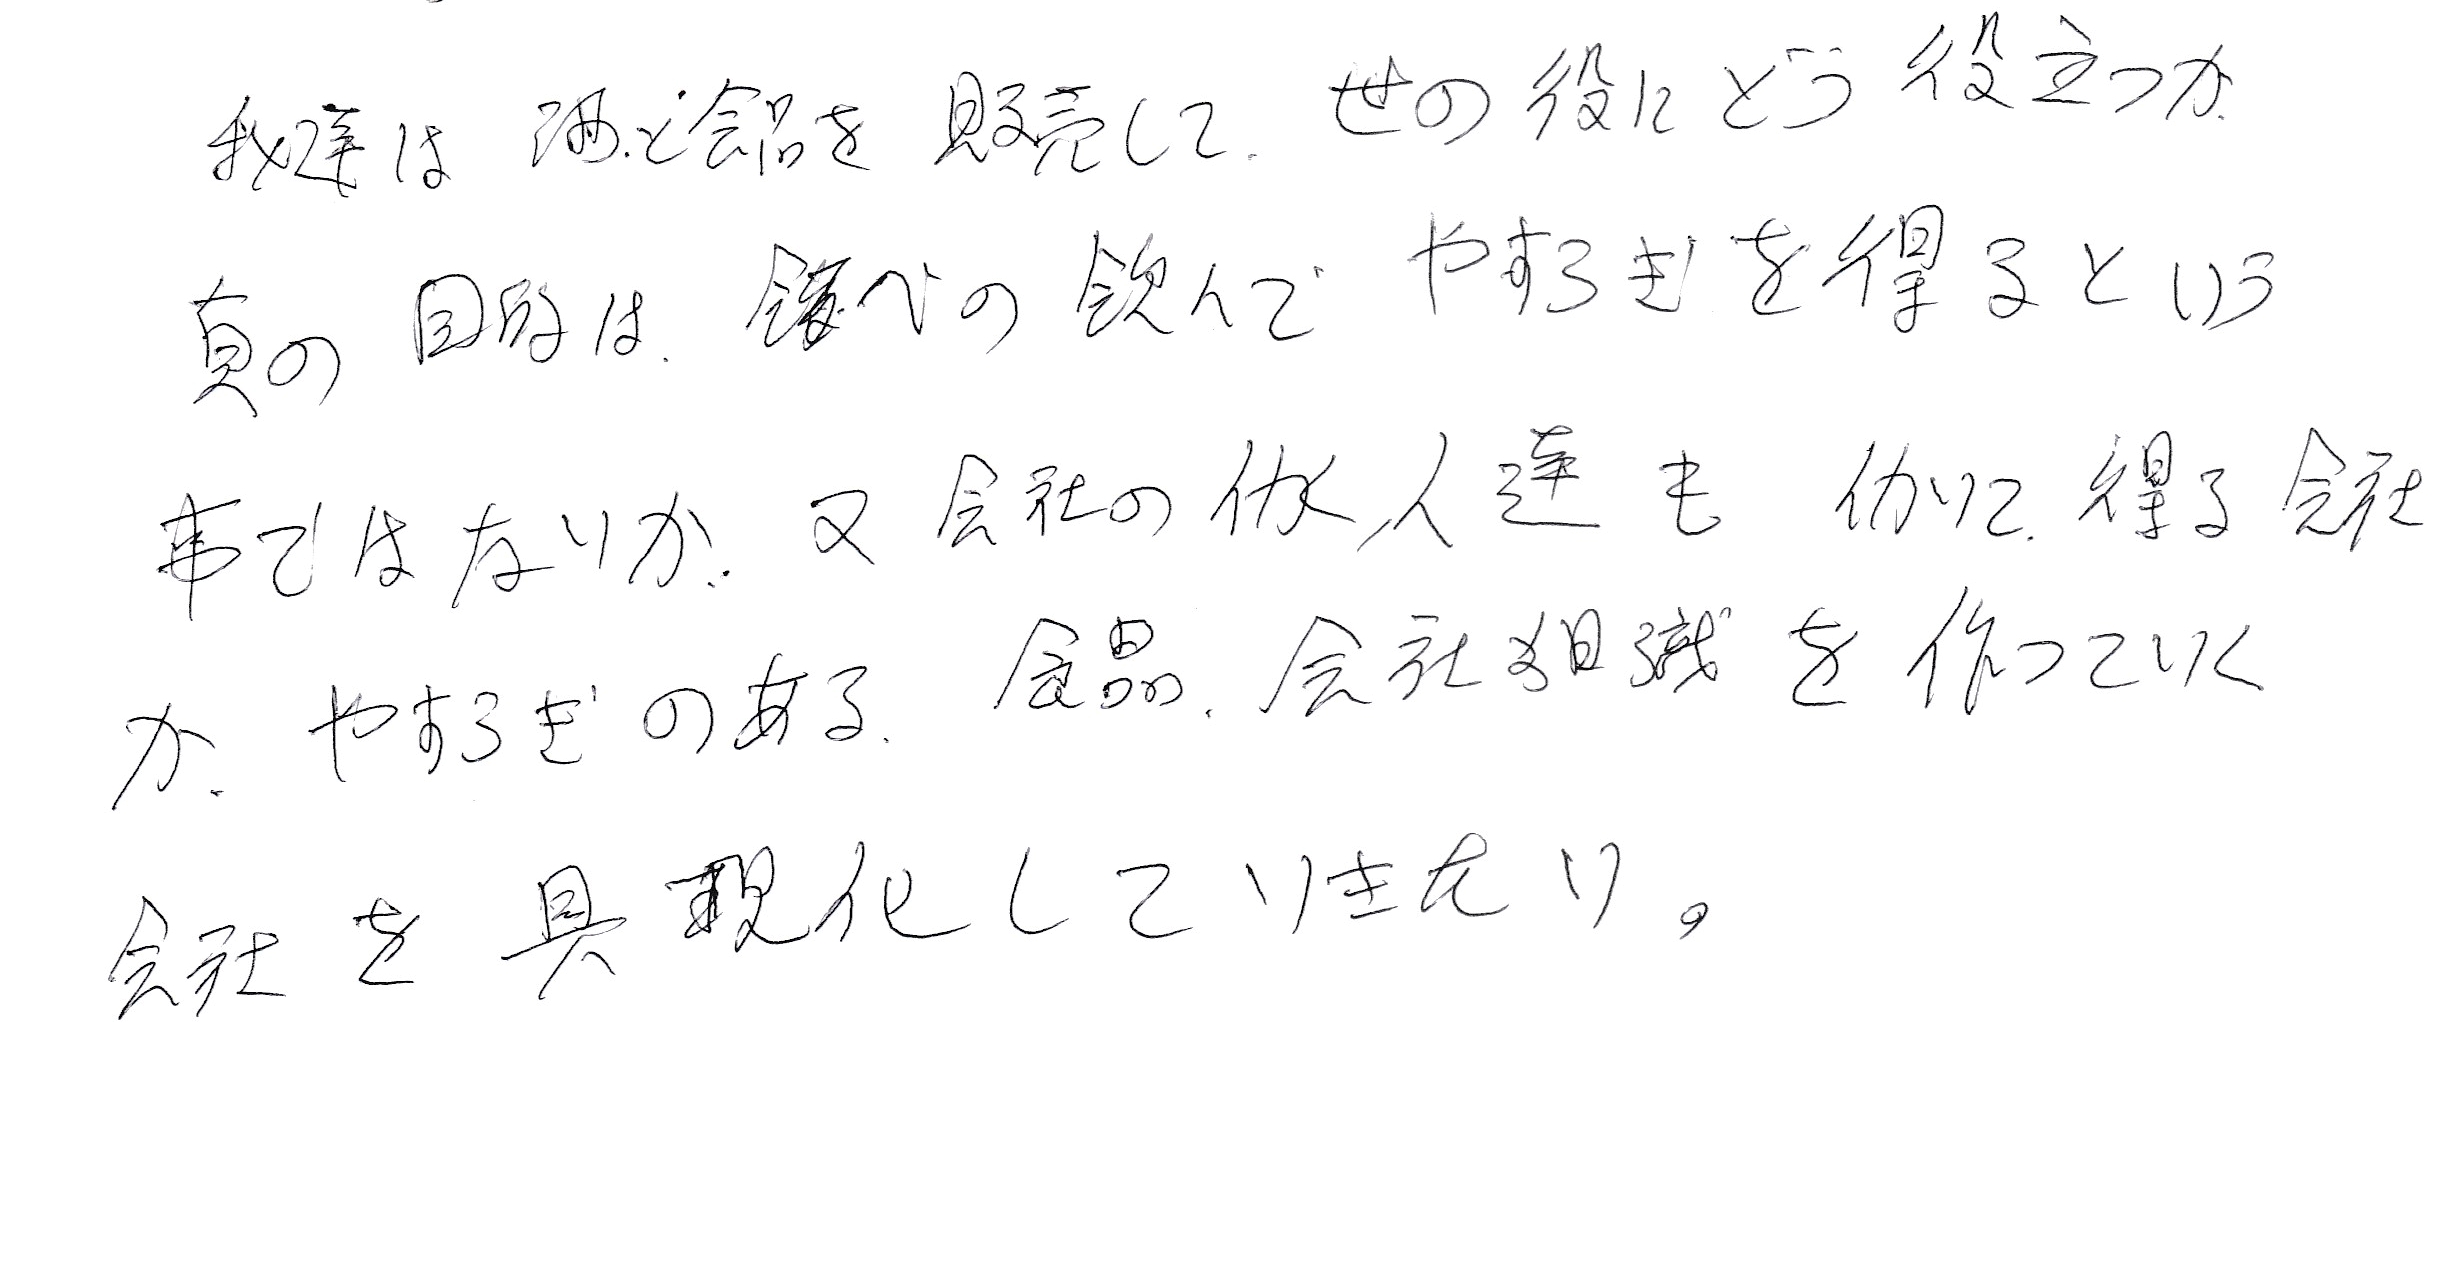 我達は 酒と食品を 販売して、世の役にどう 役立つか、
真の 目的は、食べの 飲んで やすらぎを得るという
事ではないか、又 会社の働く人達も 働いて、得る会社
か、やすらぎのある、食品、会社組織を作っていく
会社を具現化していきたい。